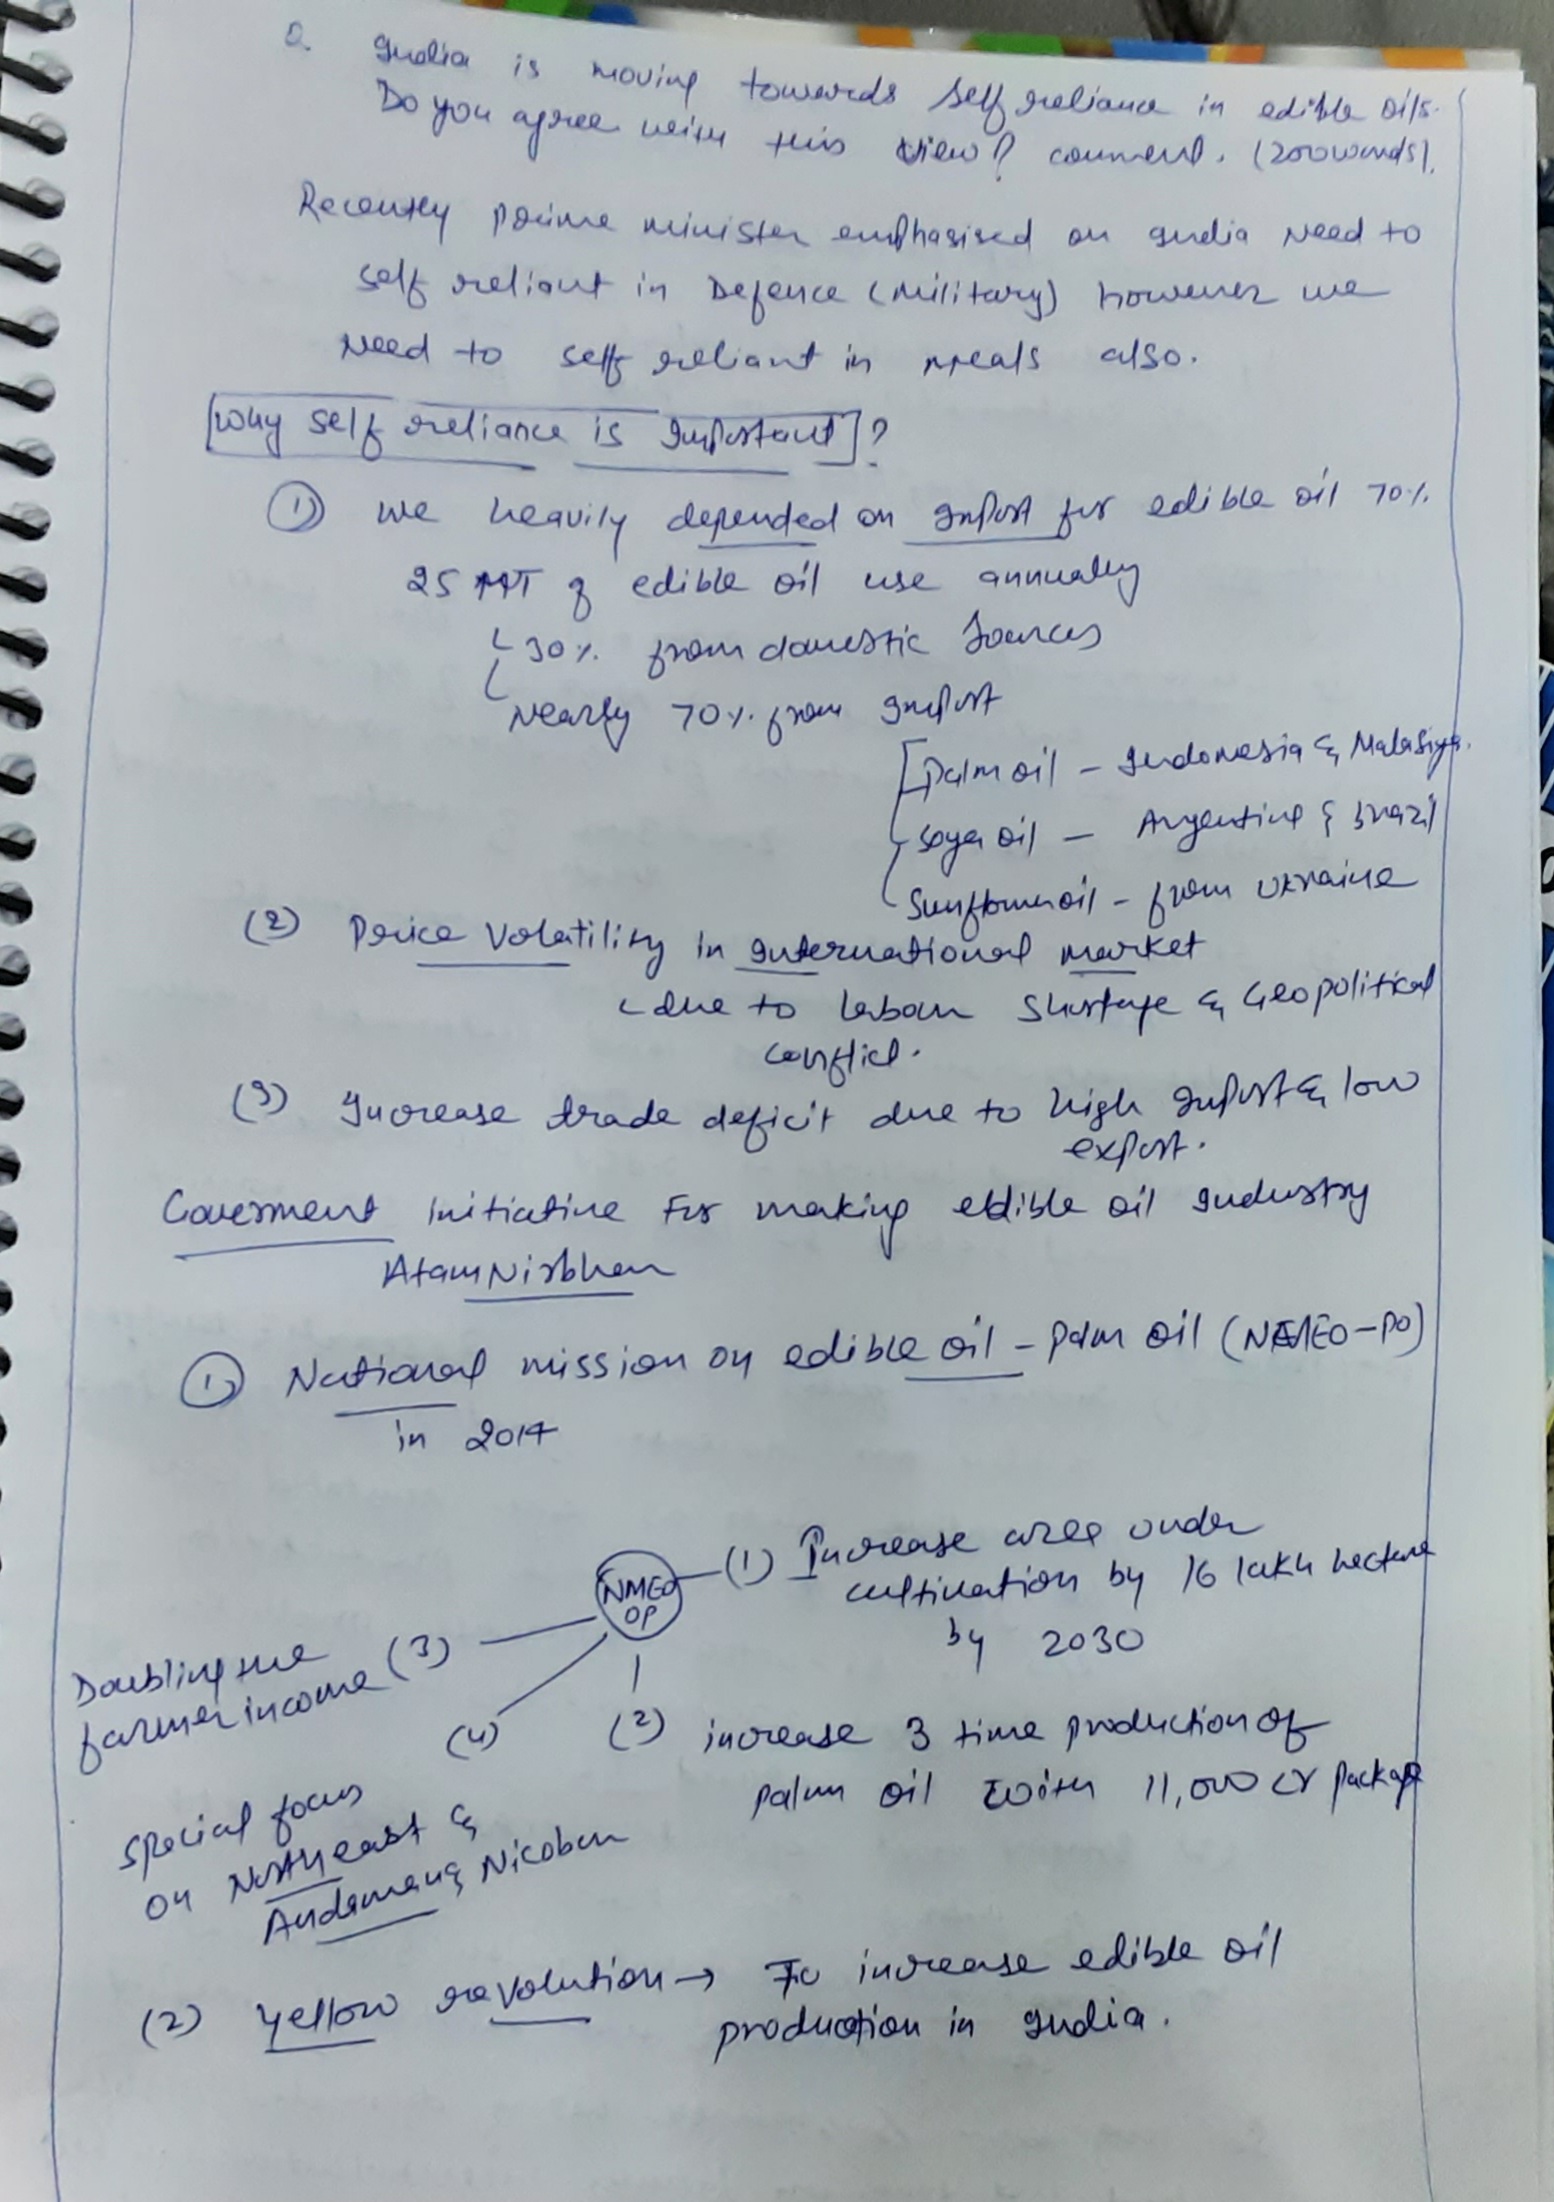 Q. India is moving towards self reliance in edible oils.
Do you agree with this view? comment. (200 words).
Recently prime minister emphasised on India need to
self reliant in Defence (military) however we
need to self reliant in meals also.
Why self reliance is Important?
(1) we heavily depended on Import for edible oil 70%
25 MT of edible oil use annualy
30% from domestic sources
Nearly 70% from Import
Palm oil - Indonesia & Malasiya.
Soya oil - Argentine & Brazil
Sunflower oil - from Ukraine
(2) Price Volatility in International market
due to labour shortage & Geopolitical
conflict.
(3) Increase trade deficit due to high Import & low
export.
Goverment initiative For making edible oil Industry
AtamNirbhar
(1) National mission on edible oil - Palm oil (NMEO-PO)
in 2014
NMEO
OP
(1) Increase area under
cultivation by 16 lakh hectare
by 2030
(2) increase 3 time production of
palm oil with 11,000 cr package
(3) Doubling the
farmer income
(4)
special focus
on North east &
Andeman & Nicobar
(2) Yellow revolution → To increase edible oil
production in India.